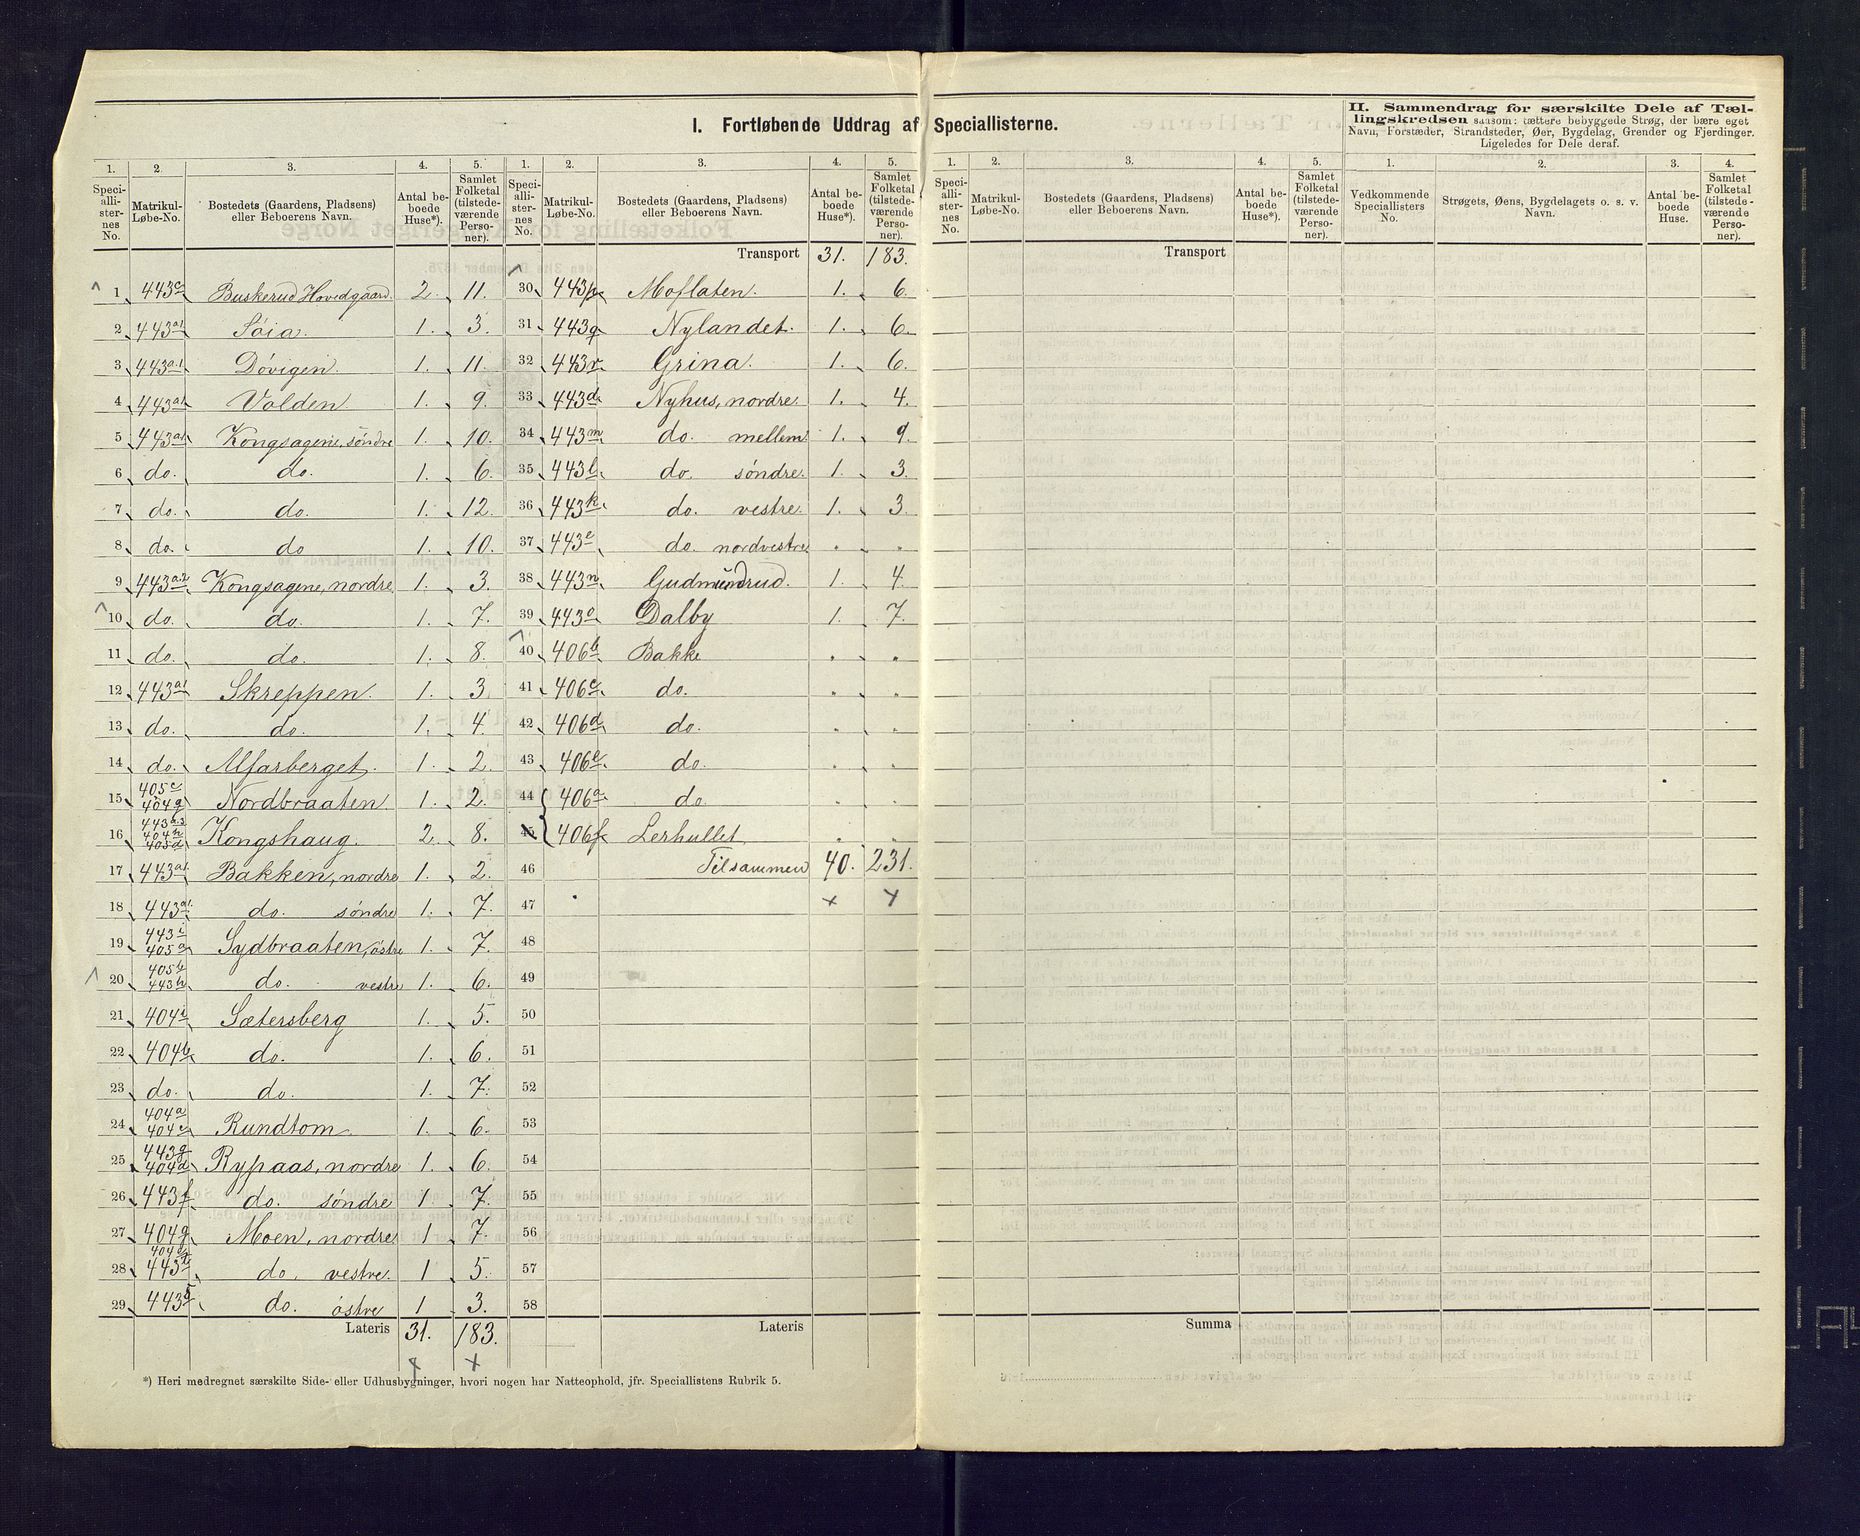 I. Fortløbende Uddrag af Speciallisterne.
1. 2. 3. 4. 5.
Speciallisternes No. Matrikul-Løbe-No. Bostedets (Gaardens, Pladsens) eller Beboerens Navn. Antal beboede Huse*). Samlet Folketal (tilstedeværende Personer).
1 443c Buskerud Hovedgaard. 2. 11.
2 443a1 Søia. 1. 3.
3 443a.1 Døvigen. 1. 11.
4 443a1 Volden 1. 9.
5 443a1 Kongsagene, söndre 1. 10.
6 do. do. 1. 6.
7 do. do. 1. 12.
8 do. do 1. 10.
9 443a.2 Kongsagene, nordre. 1. 3.
10 do. do. 1. 7.
11 do. do. 1. 8.
12 443a1 Skreppen. 1. 3
13 do. do. 1. 4.
14 do. Alfarberget. 1. 2.
15 405c 404g Nordbraaten 1. 2.
16 443a.3 404h 405d Kongshaug. 2. 8.
17 443a1 Bakken, nordre 1. 2.
18 443a1. do. söndre 1. 7.
19 443i 405a Sydbraaten, östre 1. 7.
20 405b 443h do. vestre 1. 6.
21 404i Sætersberg 1. 5.
22 404b do. 1. 6.
23 do. do. 1. 7.
24 404a 404c Rundtom 1. 6.
25 443g 404d Rypaas, nordre 1. 6.
26 443f do. söndre 1 7.
27 404g Moen, nordre. 1 7.
28 443t do. vestre. 1 5.
29 443s do. östre 1 3.
Lateris 31. 183.
*) Heri medregnet særskilte Side- eller Udhusbygninger, hvori nogen har Natteophold, jfr. Speciallistens Rubrik 5.
1. 2. 3. 4. 5.
Speciallisternes No. Matrikul-Løbe-No. Bostedets (Gaardens, Pladsens) eller Beboerens Navn. Antal beboede Huse*). Samlet Folketal (tilstedeværende Personer).
Transport 31. 183.
30 443p Moflaten. 1. 6.
31 443q Nylandet. 1. 6.
32 443r Grina. 1. 6.
33 443d Nyhus, nordre 1. 4.
34 443m do. mellem 1. 9.
35 443l do. söndre. 1. 3.
36 443k do. vestre. 1. 3.
37 443e do. nordvestre. . .
38 443n Gudmundrud. 1. 4.
39 443o Dalby 1. 7.
40 406b Bakke . .
41 406c do. . .
42 406d do. . .
43 406e do. . .
44 406a do. . .
45 406f Lerhullet . .
46 Tilsammen 40. 231.
47
48
49
50
51
52
53
54
55
56
57
58
Lateris
1. 2. 3. 4. 5.
Speciallisternes No. Matrikul-Løbe-No. Bostedets (Gaardens, Pladsens) eller Beboerens Navn. Antal beboede Huse*). Samlet Folketal (tilstedeværende Personer).
Transport
Summa
II. Sammendrag for særskilte Dele af Tællingskredsen saasom: tættere bebyggede Strøg, der bære eget
Navn, Forstæder, Strandsteder, Øer, Bygdelag, Grender og Fjerdinger.
Ligeledes for Dele deraf.
1. 2. 3. 4.
Vedkommende Speciallisters No. Strøgets, Øens, Bygdelagets o. s. v. Navn. Antal beboede Huse. Samlet Folketal (tilstedeværende Personer).